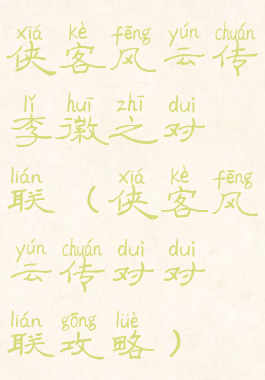 xiá kè fēng yún chuán
侠客风云传
lǐ huī zhī duì
李徽之对
lián xiá kè fēng
联（侠客风
yún chuán duì duì
云传对对
lián gōng lüè
联攻略）